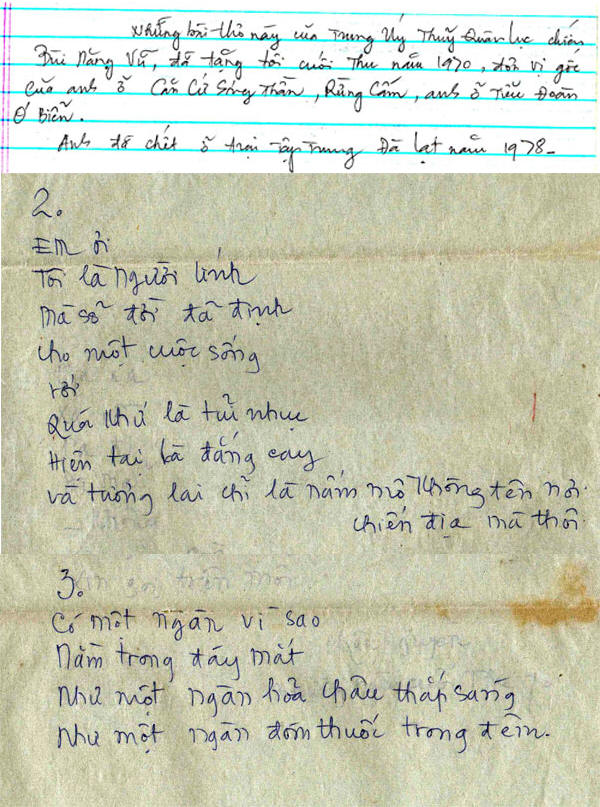 Những bài thơ này của Trung Uý Thuỷ Quân Lục chiến
Bùi Năng Vũ, đã tặng tôi cuối thu năm 1970, đơn vị gốc
của anh ở Căn Cứ Sóng Thần, Rừng Cấm, anh ở Tiểu Đoàn
Ó Biển.
Anh đã chết ở trại Tập Trung Đà lạt năm 1978-
2.
Em ơi
Tôi là người lính
Mà số đời đã định
cho một cuộc sống
rồi
Quá khứ là tủi nhục
Hiện tại là đắng cay
và tương lai chỉ là nấm mồ không tên nơi
chiến địa mà thôi
3.
Có một ngàn vì sao
Nằm trong đáy mắt
Như một ngàn hoả châu thắp sáng
Như một ngàn đóm thuốc trong đêm.